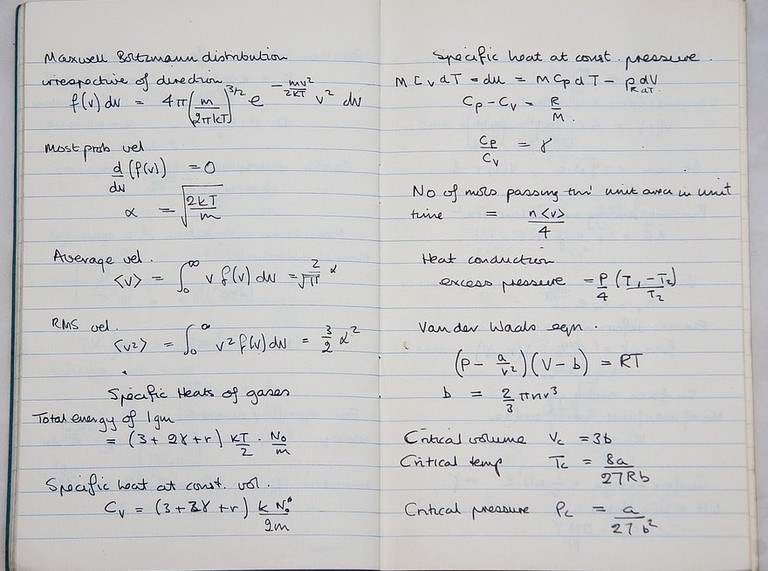 Maxwell Boltzmann distribution
irrespective of direction
f(v) dv = 4π(m/2πkT)^3/2 e^-mv²/2kT v² dv
Most prob vel
d/dv (f(v)) = 0
α = √(2kT/m)
Average vel.
<v> = ∫₀^∞ v f(v) dv = 2/√π α
RMS vel.
<v²> = ∫₀^∞ v² f(v) dv = 3/2 α²
Specific Heats of gases
Total energy of 1gm
= (3 + 2γ + r) kT/2 . N₀/m
Specific heat at const. vol.
Cv = (3 + 2γ + r) k N₀/2m
Specific heat at const. pressure.
M Cv dT = du = M Cp dT - p dV
R dT.
Cp - Cv = R/M.
Cp/Cv = γ
No of mols passing thro' unit area in unit
time = n<v>/4
Heat conduction
excess pressure = P/4 (T₁ - T₂)/T₂
Van der Waals eqn.
(P - a/v²)(V - b) = RT
b = 2/3 πnr³
Critical volume Vc = 3b
Critical temp Tc = 8a/27Rb
Critical pressure Pc = a/27b²